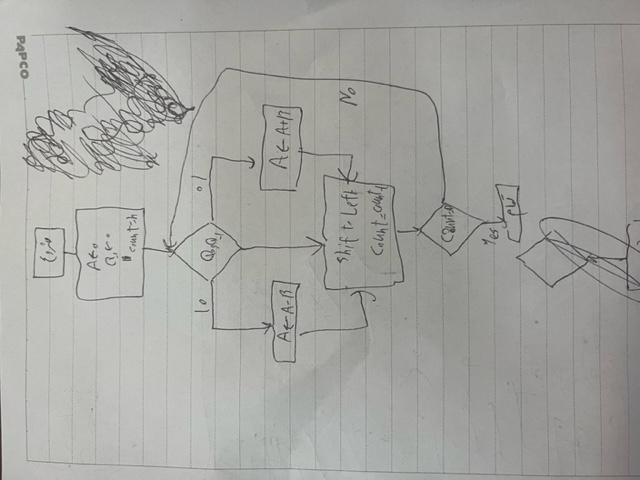 PAPCO
شروع
A←0
Q₋₁←0
count=n
10
Q₀,Q₋₁
01
A←A-B
A←A+B
Shift to Left
Count=count-1
No
Count=0
Yes
تمام